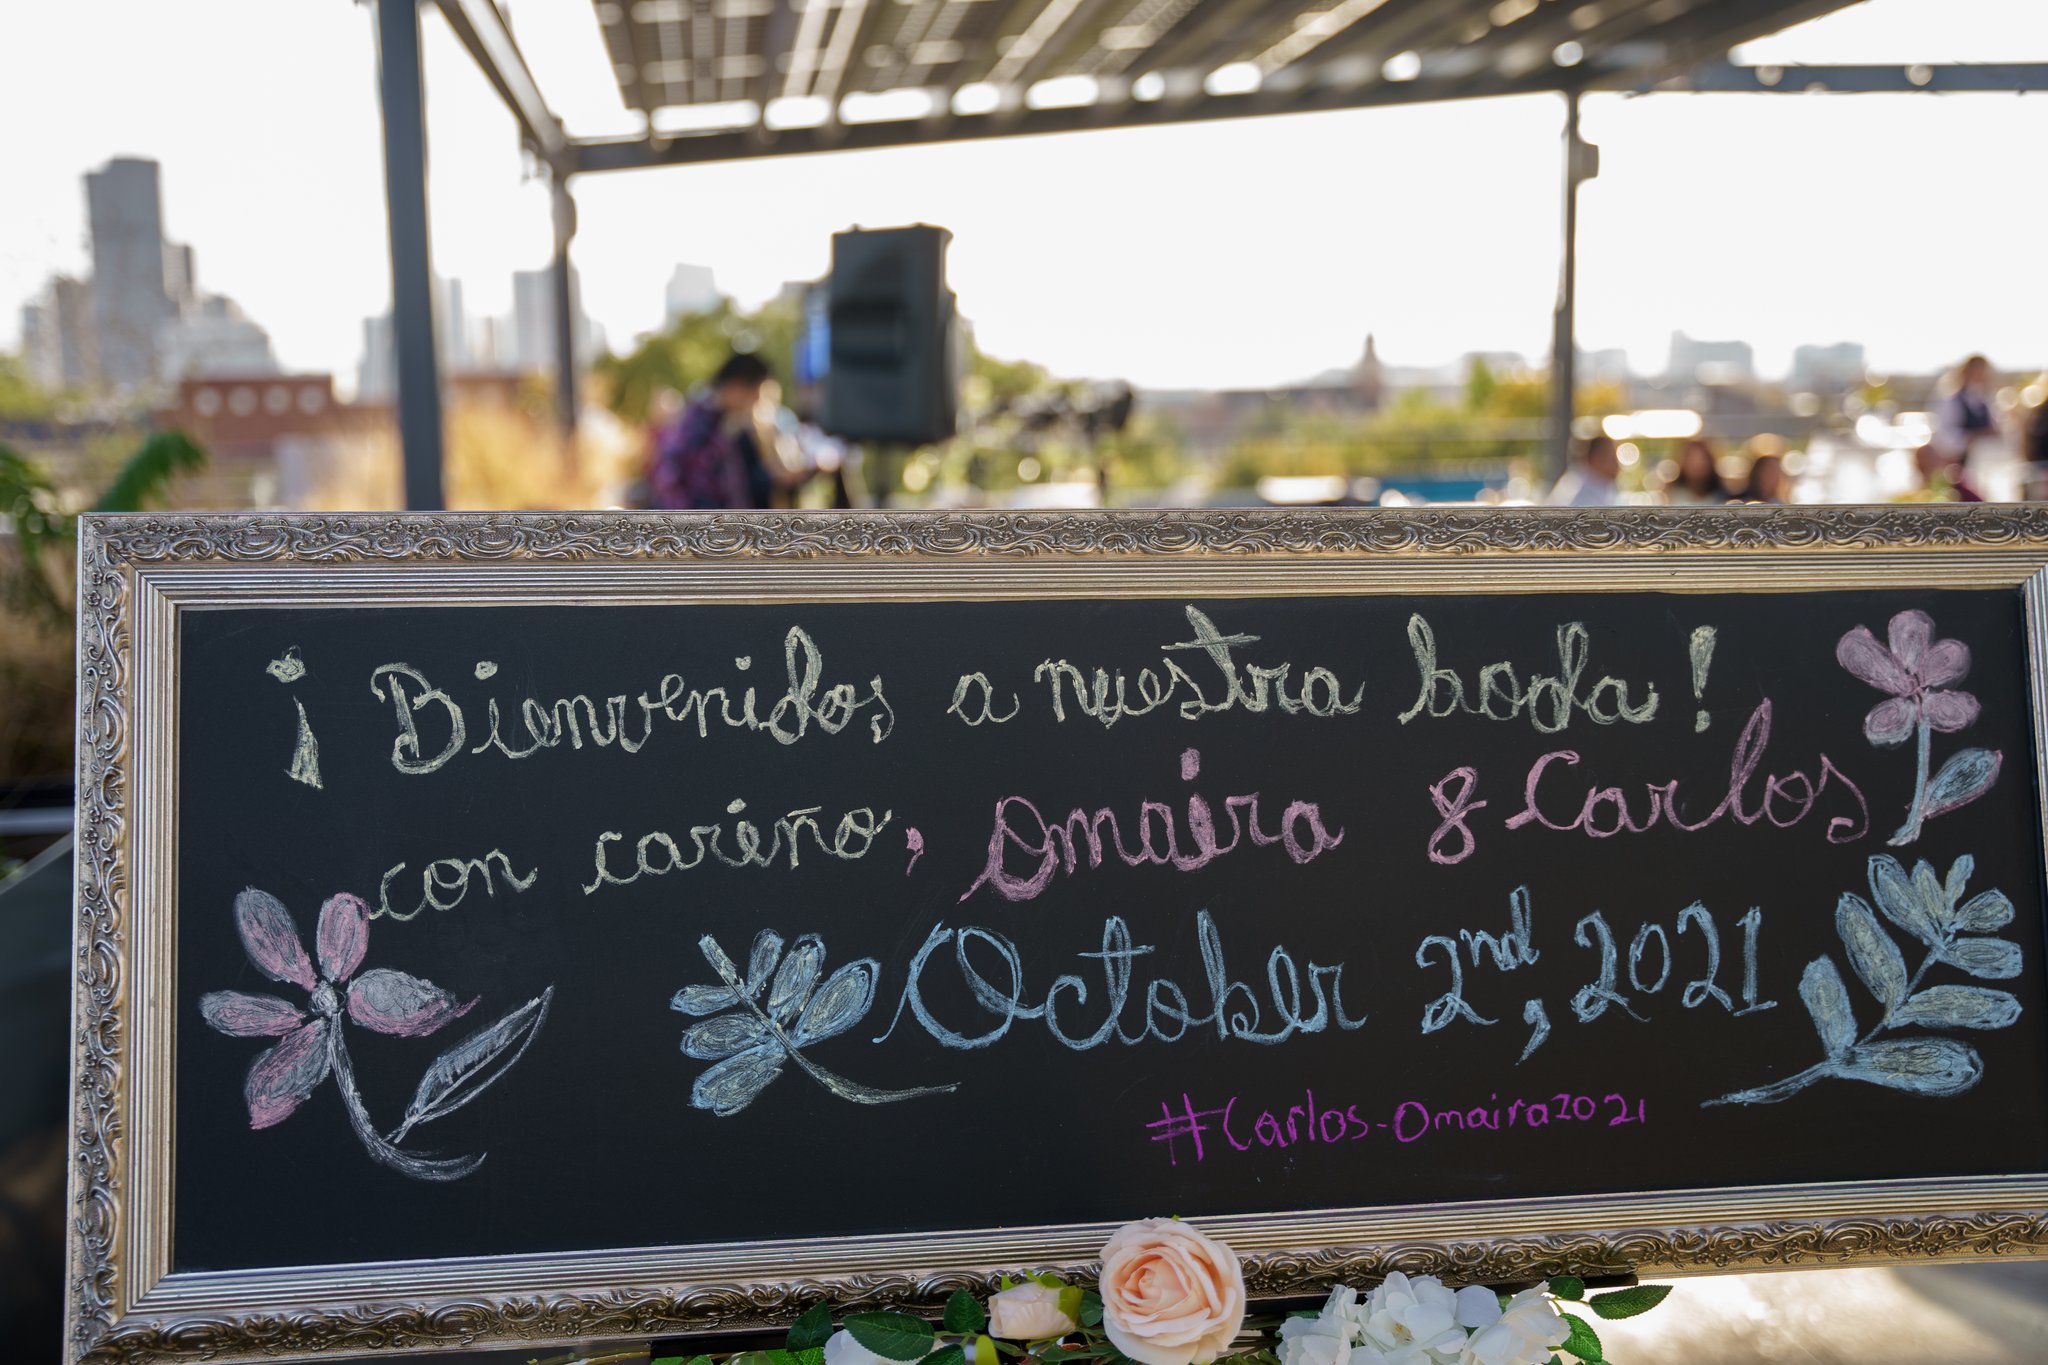 ¡Bienvenidos a nuestra boda!
con cariño, Omaira & Carlos
October 2nd, 2021
#Carlos-Omaira2021